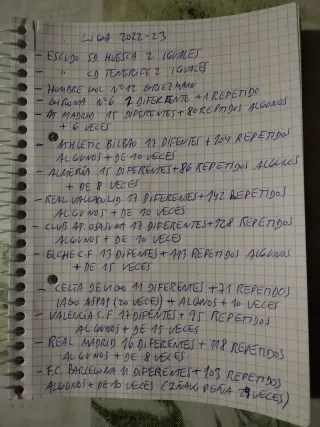 LIGA 2022-23
- ESCUDO SD HUESCA 2 IGUALES
- " CD TENERIFE 2 IGUALES
- HOMBRE GOL Nº12 GRIEZMANN
- GIRONA Nº6 1 DIFERENTE +1 REPETIDO
- AT MADRID 15 DIFERENTES + 80 REPTIDOS ALGUNOS
+ 6 VECES
- ATHLETIC BILBAO 17 DIFENTES + 104 REPETIDOS
ALGUNOS + DE 10 VECES
- ALMERÍA 15 DIFERENTES + 86 REPETIDOS ALGUNOS
+ DE 8 VECES
- REAL VALLADOLID 17 DIFERENTES + 142 REPETIDOS
ALGUNOS + DE 10 VECES
- CLUB AT OSASUNA 17 DIFERENTES + 128 REPETIDOS
ALGUNOS + DE 10 VECES
- ELCHE C.F. 13 DIFENTES + 113 REPETIDOS ALGUNOS
+ DE 15 VECES
- CELTA DE VIGO 11 DIFERENTES + 71 REPETIDOS
IAGO ASPAS (20 VECES) + ALGUNOS + 10 VECES
- VALENCIA C.F. 17 DIFENTES + 95 REPETIDOS
ALGUNOS + DE 15 VECES
- REAL MADRID 16 DIFERENTES + 118 REPETIDOS
ALGUNOS + DE 8 VECES
- F.C. BARCELONA 11 DIFERENTES + 103 REPETIDOS
ALGUNOS + DE 10 VECES (IÑAKI PEÑA 29 VECES)